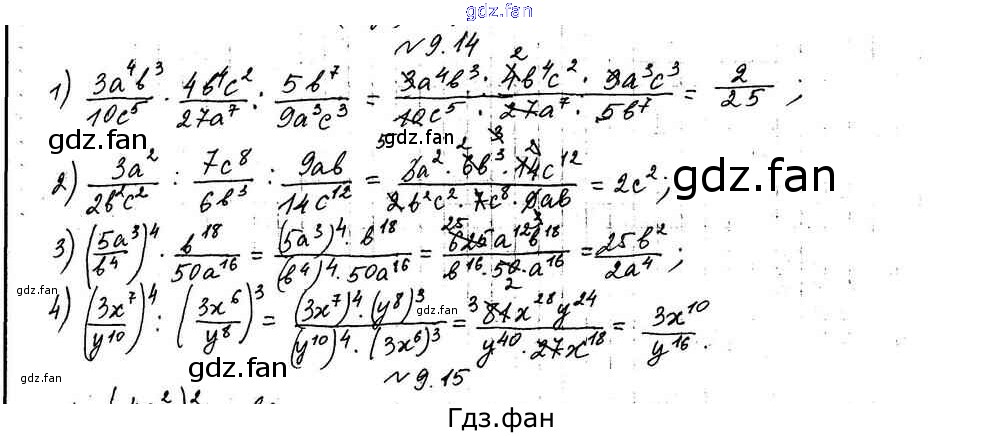 gdz.fan
gdz.fan
№ 9.14
1) \frac{3a^4b^3}{10c^5} \cdot \frac{4b^4c^2}{27a^7} : \frac{5b^7}{9a^3c^3} = \frac{3a^4b^3 \cdot 4b^4c^2 \cdot 9a^3c^3}{10c^5 \cdot 27a^7 \cdot 5b^7} = \frac{2}{25};
gdz.fan gdz.fan
2) \frac{3a^2}{2b^2c^2} : \frac{7c^8}{6b^3} : \frac{9ab}{14c^{12}} = \frac{3a^2 \cdot 6b^3 \cdot 14c^{12}}{2b^2c^2 \cdot 7c^8 \cdot 9ab} = 2c^2; gdz.fan
3) (\frac{5a^3}{b^4})^4 \cdot \frac{b^{18}}{50a^{16}} = \frac{(5a^3)^4 \cdot b^{18}}{(b^4)^4 \cdot 50a^{16}} = \frac{625a^{12}b^{18}}{b^{16} \cdot 50 \cdot a^{16}} = \frac{25b^2}{2a^4};
gdz.fan gdz.fan gdz.fan
4) (\frac{3x^7}{y^{10}})^4 : (\frac{3x^6}{y^8})^3 = \frac{(3x^7)^4 \cdot (y^8)^3}{(y^{10})^4 \cdot (3x^6)^3} = \frac{81x^{28}y^{24}}{y^{40} \cdot 27x^{18}} = \frac{3x^{10}}{y^{16}}.
gdz.fan
gdz.fan gdz.fan gdz.fan
№ 9.15
Гдз.фан